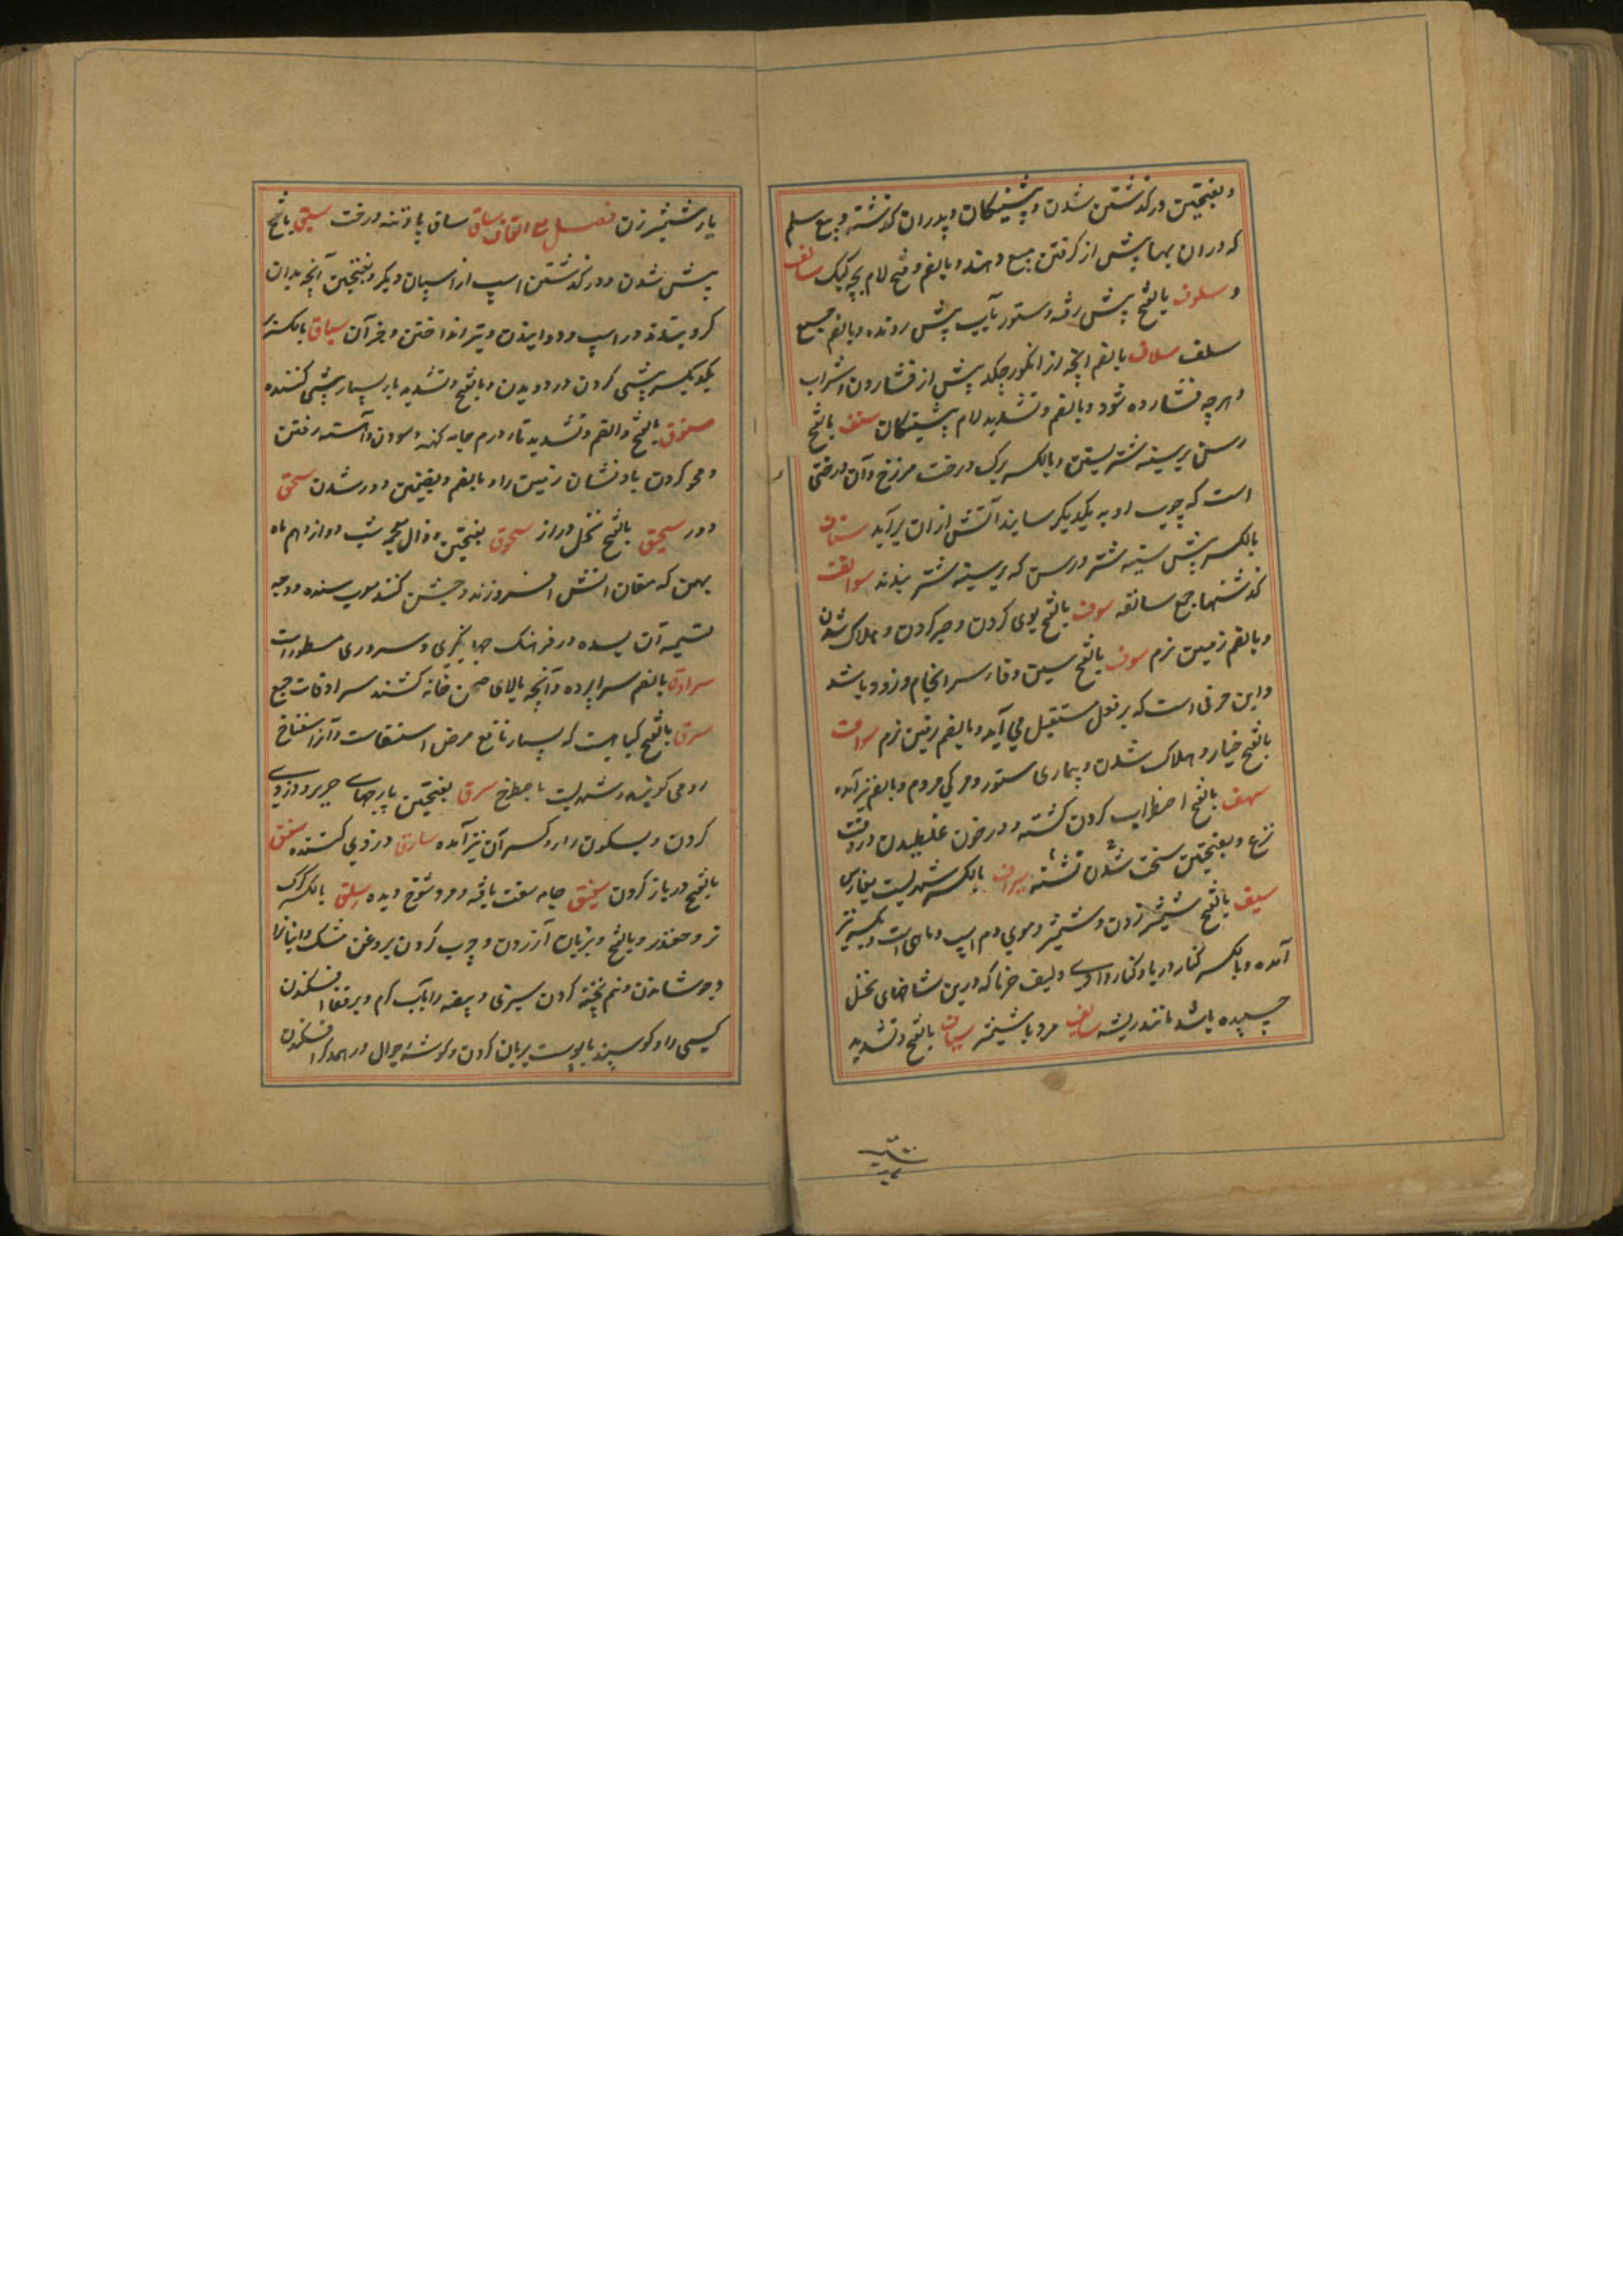 و بفتحتین درگذشتن شدن و پیشینگان و پدران گذشته و بیع سلم
که دران بها پیش از گرفتن مبیع دهند و بالضم و فتح لام بچه کبک سالف
و سلوف بالفتح پیش رفته و ستور بآب پیش رونده و بالضم جمع
سلف سلاف بالضم انچه از انگور چکد پیش از فشاردن و شراب
و هرچه فشارده شود و بالضم و تشدید لام پیشینگان سنف بالفتح
رسن بر سینه شتر بستن و بالکسر برگ درخت مرزخ و آن درختی
است که چوب او به یکدیگر سایند آتش ازان برآید سناف
بالکسر پیش سینه شتر و رسن که بر سینه شتر بندند سوالف
گذشتها جمع سالفه سوف بالفتح بوی کردن و صبر کردن و هلاک شدن
و بالضم زمین نرم سوف بالفتح سین و فا سرانجام و زود باشد
و این حرفی است که بر فعل مستقبل می آید و بالضم زمین نرم سواف
بالفتح خیار و هلاک شدن و بیماری ستور و مرگی مردم و بالضم نیز آمده
سهف بالفتح اضطراب کردن کشته و در خون غلطیدن در وقت
نزع و بفتحتین سخت تشنه شدن سیراف بالکسر شهریست بفارس
سیف بالفتح شمشیر زدن و شمشیر و موی دم اسپ و ماهی است و بکسر نیز
آمده و بالکسر کنار دریا و کنار وادی و لیف خرما که در بن شاخهای نخل
چسپیده باشد مانند ریشه سایف مرد با شمشیر سیاف بالفتح و تشدید
یا شمشیر زن فصل مع القاف ساق ساق پا و تنه درخت سبق بالفتح
پیش شدن و درگذشتن اسپ از اسپان دیگر و بفتحتین آنچه بدان
گرو بندند در اسپ دوانیدن و تیر انداختن و جز آن سباق بالکسر
بیکدیگر پیشی کردن در دویدن و بالفتح و تشدید با بسیار پیشی کننده
ستوق بالفتح و الضم و تشدید تا درم جامه کهنه و سودن و آهسته رفتن
و محو کردن باد نشان زمین را و بالضم و بضمتین دور شدن سحق
دور سحیق بالفتح نخل دراز سحوق بفتحتین و ذال معجمه شب دوازدهم ماه
بهمن که مغان آتش افروزند و جشن کنند معرب سده و وجه
تسمیه آن بسده در فرهنگ جهانگیری و سروری مسطور است
سرادق بالضم سراپرده و آنچه بالای صحن خانه کشند سرادقات جمع
سرق بالفتح گیاهیست که بسیار نافع مرض استسقاست و آنرا اسفناخ
رومی گویند و شهریست باهواز سرق بفتحتین پارچهای حریر و دزدی
کردن و بسکون را و کسر آن نیز آمده سارق دزدی کننده سفق
بالفتح در باز کردن سفیق جامه سفت بافته و مرد شوخ دیده سلق بالکسر گرگ
نر و چغندر و بالفتح و بزبان آزردن و چرب کردن بروغن مشک و انبان را
و جوشاندن و نیم پخته کردن سبزی و بیضه را بآب گرم و بر قفا افکندن
کسی را و گوسپند با پوست بریان کردن و گوشه جوال در همدیگر افکندن